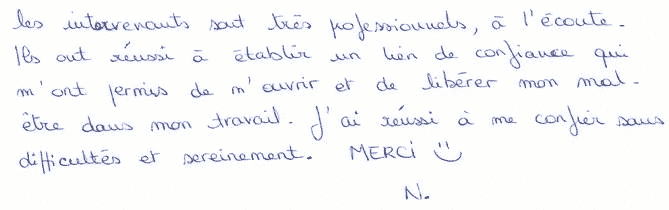 les intervenants sont très professionnels, à l'écoute.
Ils ont réussi à établir un lien de confiance qui
m'ont permis de m'ouvrir et de libérer mon mal-
être dans mon travail. J'ai réussi à me confier sans
difficultés et sereinement. MERCI :)
N.